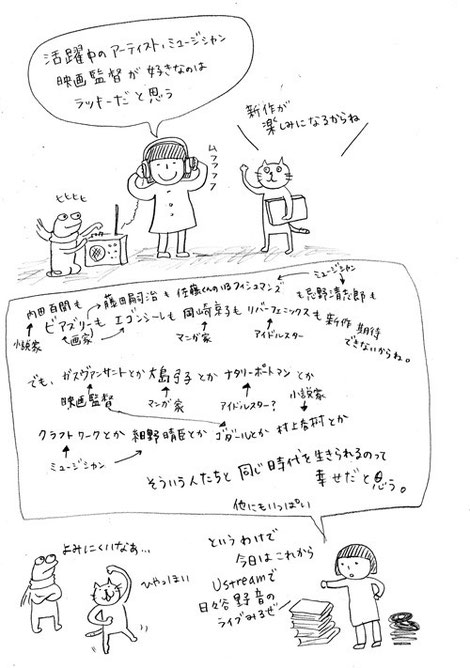 活躍中のアーティスト、ミュージシャン
映画監督が好きなのは
ラッキーだと思う
新作が
楽しみになるからね
ムフフフフ
ヒヒヒヒ
ミュージシャン
内田百閒も
藤田嗣治も
佐藤くんのいるフィッシュマンズ
も忌野清志郎も
ビアズリーも
エゴンシーレも
岡崎京子も
リバーフェニックスも
新作期待
できないからね。
小説家
画家
マンガ家
アイドルスター
でも、ガスヴァンサントとか大島弓子とかナタリーポートマンとか
映画監督
マンガ家
アイドルスター?
小説家
クラフトワークとか細野晴臣とかゴダールとか村上春樹とか
ミュージシャン
そういう人たちと同じ時代を生きられるのって
幸せだと思う。
他にもいっぱい
よみにくいなぁ…
ひゃっほい
というわけで
今日はこれから
Ustreamで
日々谷野音の
ライブみるぜ